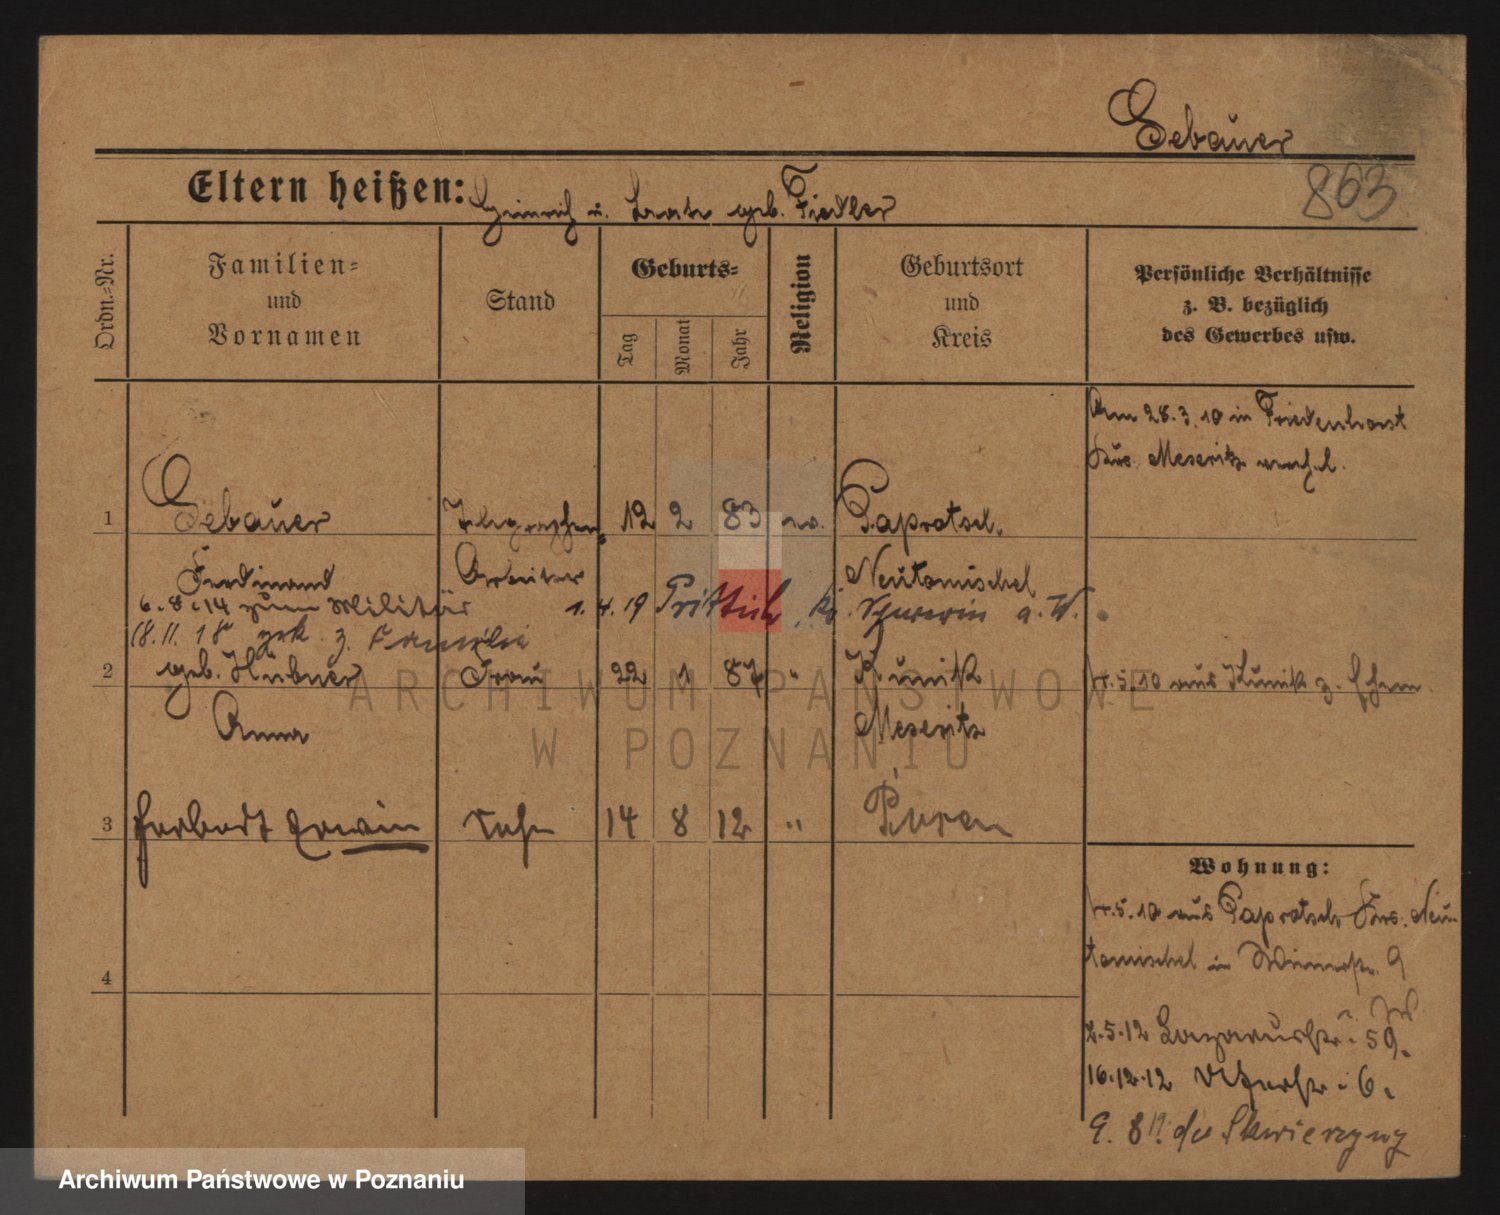 Gebauer
863
Eltern heißen: Heinrich u. Beate geb. Fiedler
Ordn.-Nr.
Familien-
und
Vornamen
Stand
Geburts-
Tag
Monat
Jahr
Religion
Geburtsort
und
Kreis
Persönliche Verhältnisse
z. B. bezüglich
des Gewerbes usw.
Am 28.3.10 in Friedenhorst
Krs. Meseritz verehel.
1 Gebauer Telegraphen- 12 2 83 ev. Paprotsch.
Ferdinand Arbeiter Neutomischel
6.8.14 zum Militär 1.4.19 Prittisch, Kr. Schwerin a. W.
18.11.18 zrk. z. Familie
2 geb. Hübner Frau 22 1 87 " Kunik 4.5.10 aus Kunik z. Ehem.
Anna Meseritz
3 Herbert Erwin Sohn 14 8 12 " Posen
Wohnung:
4.5.10 aus Paprotsch Krs. Neu-
tomischel in 9
4
2.5.12 Lazarusstr. 59.
16.12.12 6.
9.8 do Skwierzyny
ARCHIWUM PAŃSTWOWE
W POZNANIU
Archiwum Państwowe w Poznaniu